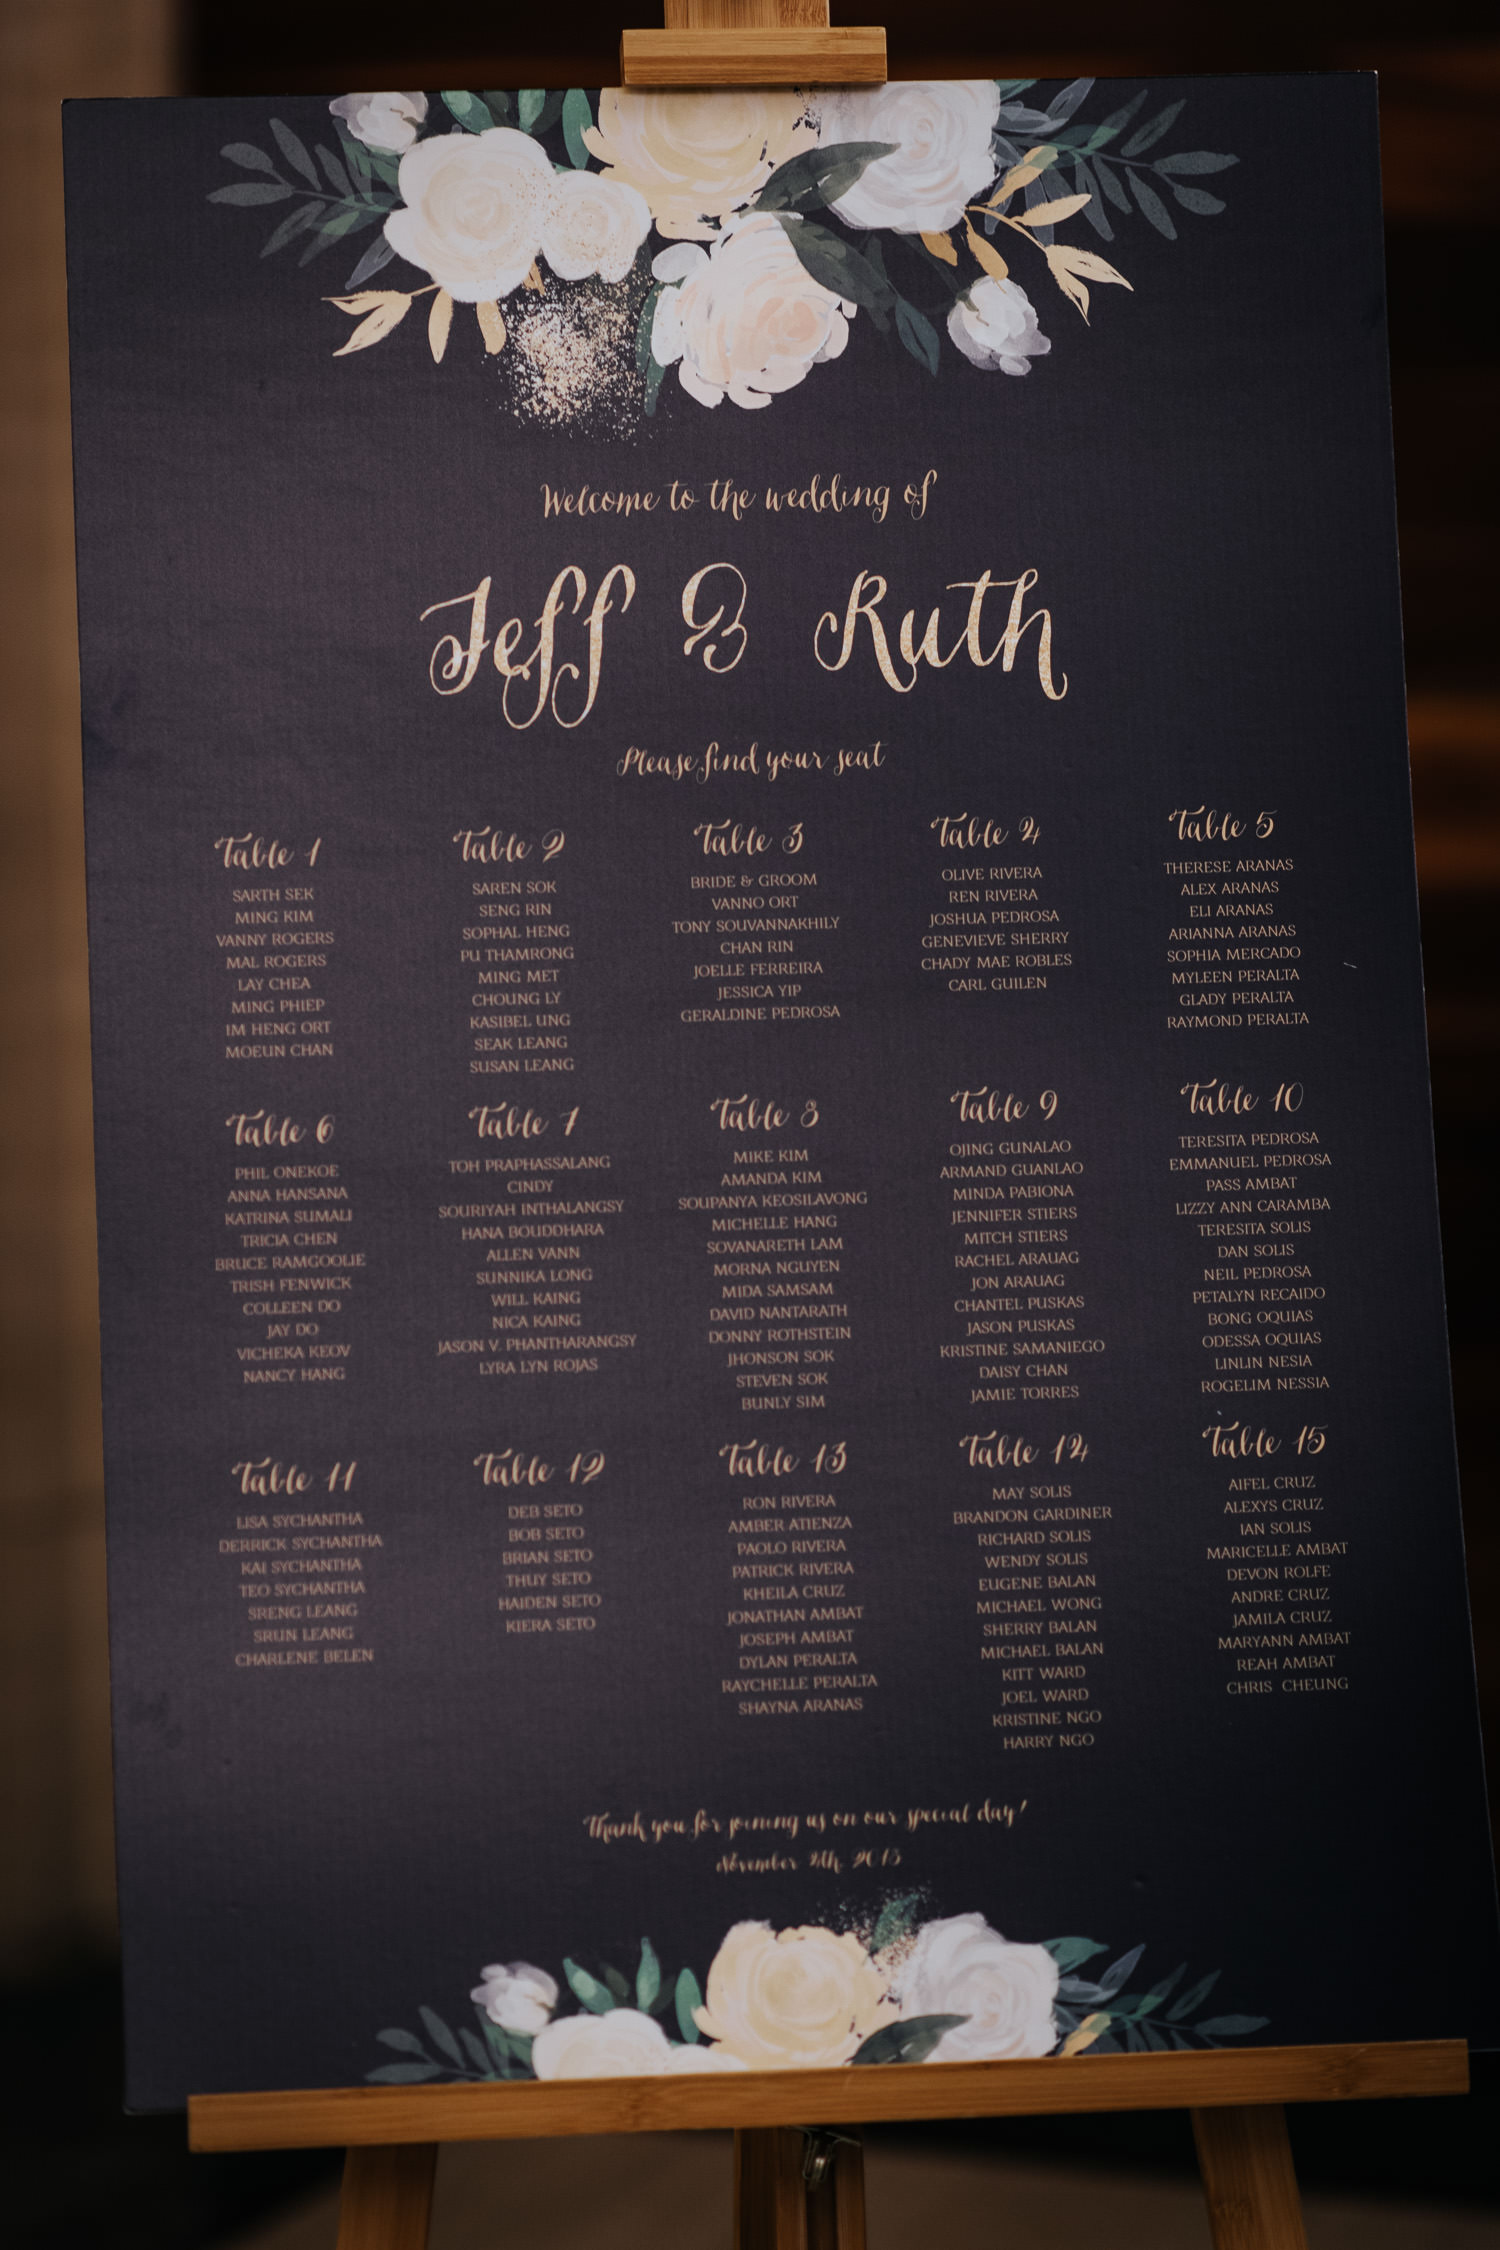 Welcome to the wedding of
Jeff & Ruth
Please find your seat
Table 1
SARTH SEK
MING KIM
VANNY ROGERS
MAL ROGERS
LAY CHEA
MING PHIEP
IM HENG ORT
MOEUN CHAN
Table 2
SAREN SOK
SENG RIN
SOPHAL HENG
PU THAMRONG
MING MET
CHOUNG LY
KASIBEL UNG
SEAK LEANG
SUSAN LEANG
Table 3
BRIDE & GROOM
VANNO ORT
TONY SOUVANNAKHILY
CHAN RIN
JOELLE FERREIRA
JESSICA YIP
GERALDINE PEDROSA
Table 4
OLIVE RIVERA
REN RIVERA
JOSHUA PEDROSA
GENEVIEVE SHERRY
CHADY MAE ROBLES
CARL GUILEN
Table 5
THERESE ARANAS
ALEX ARANAS
ELI ARANAS
ARIANNA ARANAS
SOPHIA MERCADO
MYLEEN PERALTA
GLADY PERALTA
RAYMOND PERALTA
Table 6
PHIL ONEKOE
ANNA HANSANA
KATRINA SUMALI
TRICIA CHEN
BRUCE RAMGOOLIE
TRISH FENWICK
COLLEEN DO
JAY DO
VICHEKA KEOV
NANCY HANG
Table 7
TOH PRAPHASSALANG
CINDY
SOURIYAH INTHALANGSY
HANA BOUDDHARA
ALLEN VANN
SUNNIKA LONG
WILL KAING
NICA KAING
JASON V. PHANTHARANGSY
LYRA LYN ROJAS
Table 8
MIKE KIM
AMANDA KIM
SOUPANYA KEOSILAVONG
MICHELLE HANG
SOVANARETH LAM
MORNA NGUYEN
MIDA SAMSAM
DAVID NANTARATH
DONNY ROTHSTEIN
JHONSON SOK
STEVEN SOK
BUNLY SIM
Table 9
OJING GUNALAO
ARMAND GUANLAO
MINDA PABIONA
JENNIFER STIERS
MITCH STIERS
RACHEL ARAUAG
JON ARAUAG
CHANTEL PUSKAS
JASON PUSKAS
KRISTINE SAMANIEGO
DAISY CHAN
JAMIE TORRES
Table 10
TERESITA PEDROSA
EMMANUEL PEDROSA
PASS AMBAT
LIZZY ANN CARAMBA
TERESITA SOLIS
DAN SOLIS
NEIL PEDROSA
PETALYN RECAIDO
BONG OQUIAS
ODESSA OQUIAS
LINLIN NESIA
ROGELIM NESSIA
Table 11
LISA SYCHANTHA
DERRICK SYCHANTHA
KAI SYCHANTHA
TEO SYCHANTHA
SRENG LEANG
SRUN LEANG
CHARLENE BELEN
Table 12
DEB SETO
BOB SETO
BRIAN SETO
THUY SETO
HAIDEN SETO
KIERA SETO
Table 13
RON RIVERA
AMBER ATIENZA
PAOLO RIVERA
PATRICK RIVERA
KHEILA CRUZ
JONATHAN AMBAT
JOSEPH AMBAT
DYLAN PERALTA
RAYCHELLE PERALTA
SHAYNA ARANAS
Table 14
MAY SOLIS
BRANDON GARDINER
RICHARD SOLIS
WENDY SOLIS
EUGENE BALAN
MICHAEL WONG
SHERRY BALAN
MICHAEL BALAN
KITT WARD
JOEL WARD
KRISTINE NGO
HARRY NGO
Table 15
AIFEL CRUZ
ALEXYS CRUZ
IAN SOLIS
MARICELLE AMBAT
DEVON ROLFE
ANDRE CRUZ
JAMILA CRUZ
MARYANN AMBAT
REAH AMBAT
CHRIS CHEUNG
Thank you for joining us on our special day!
November